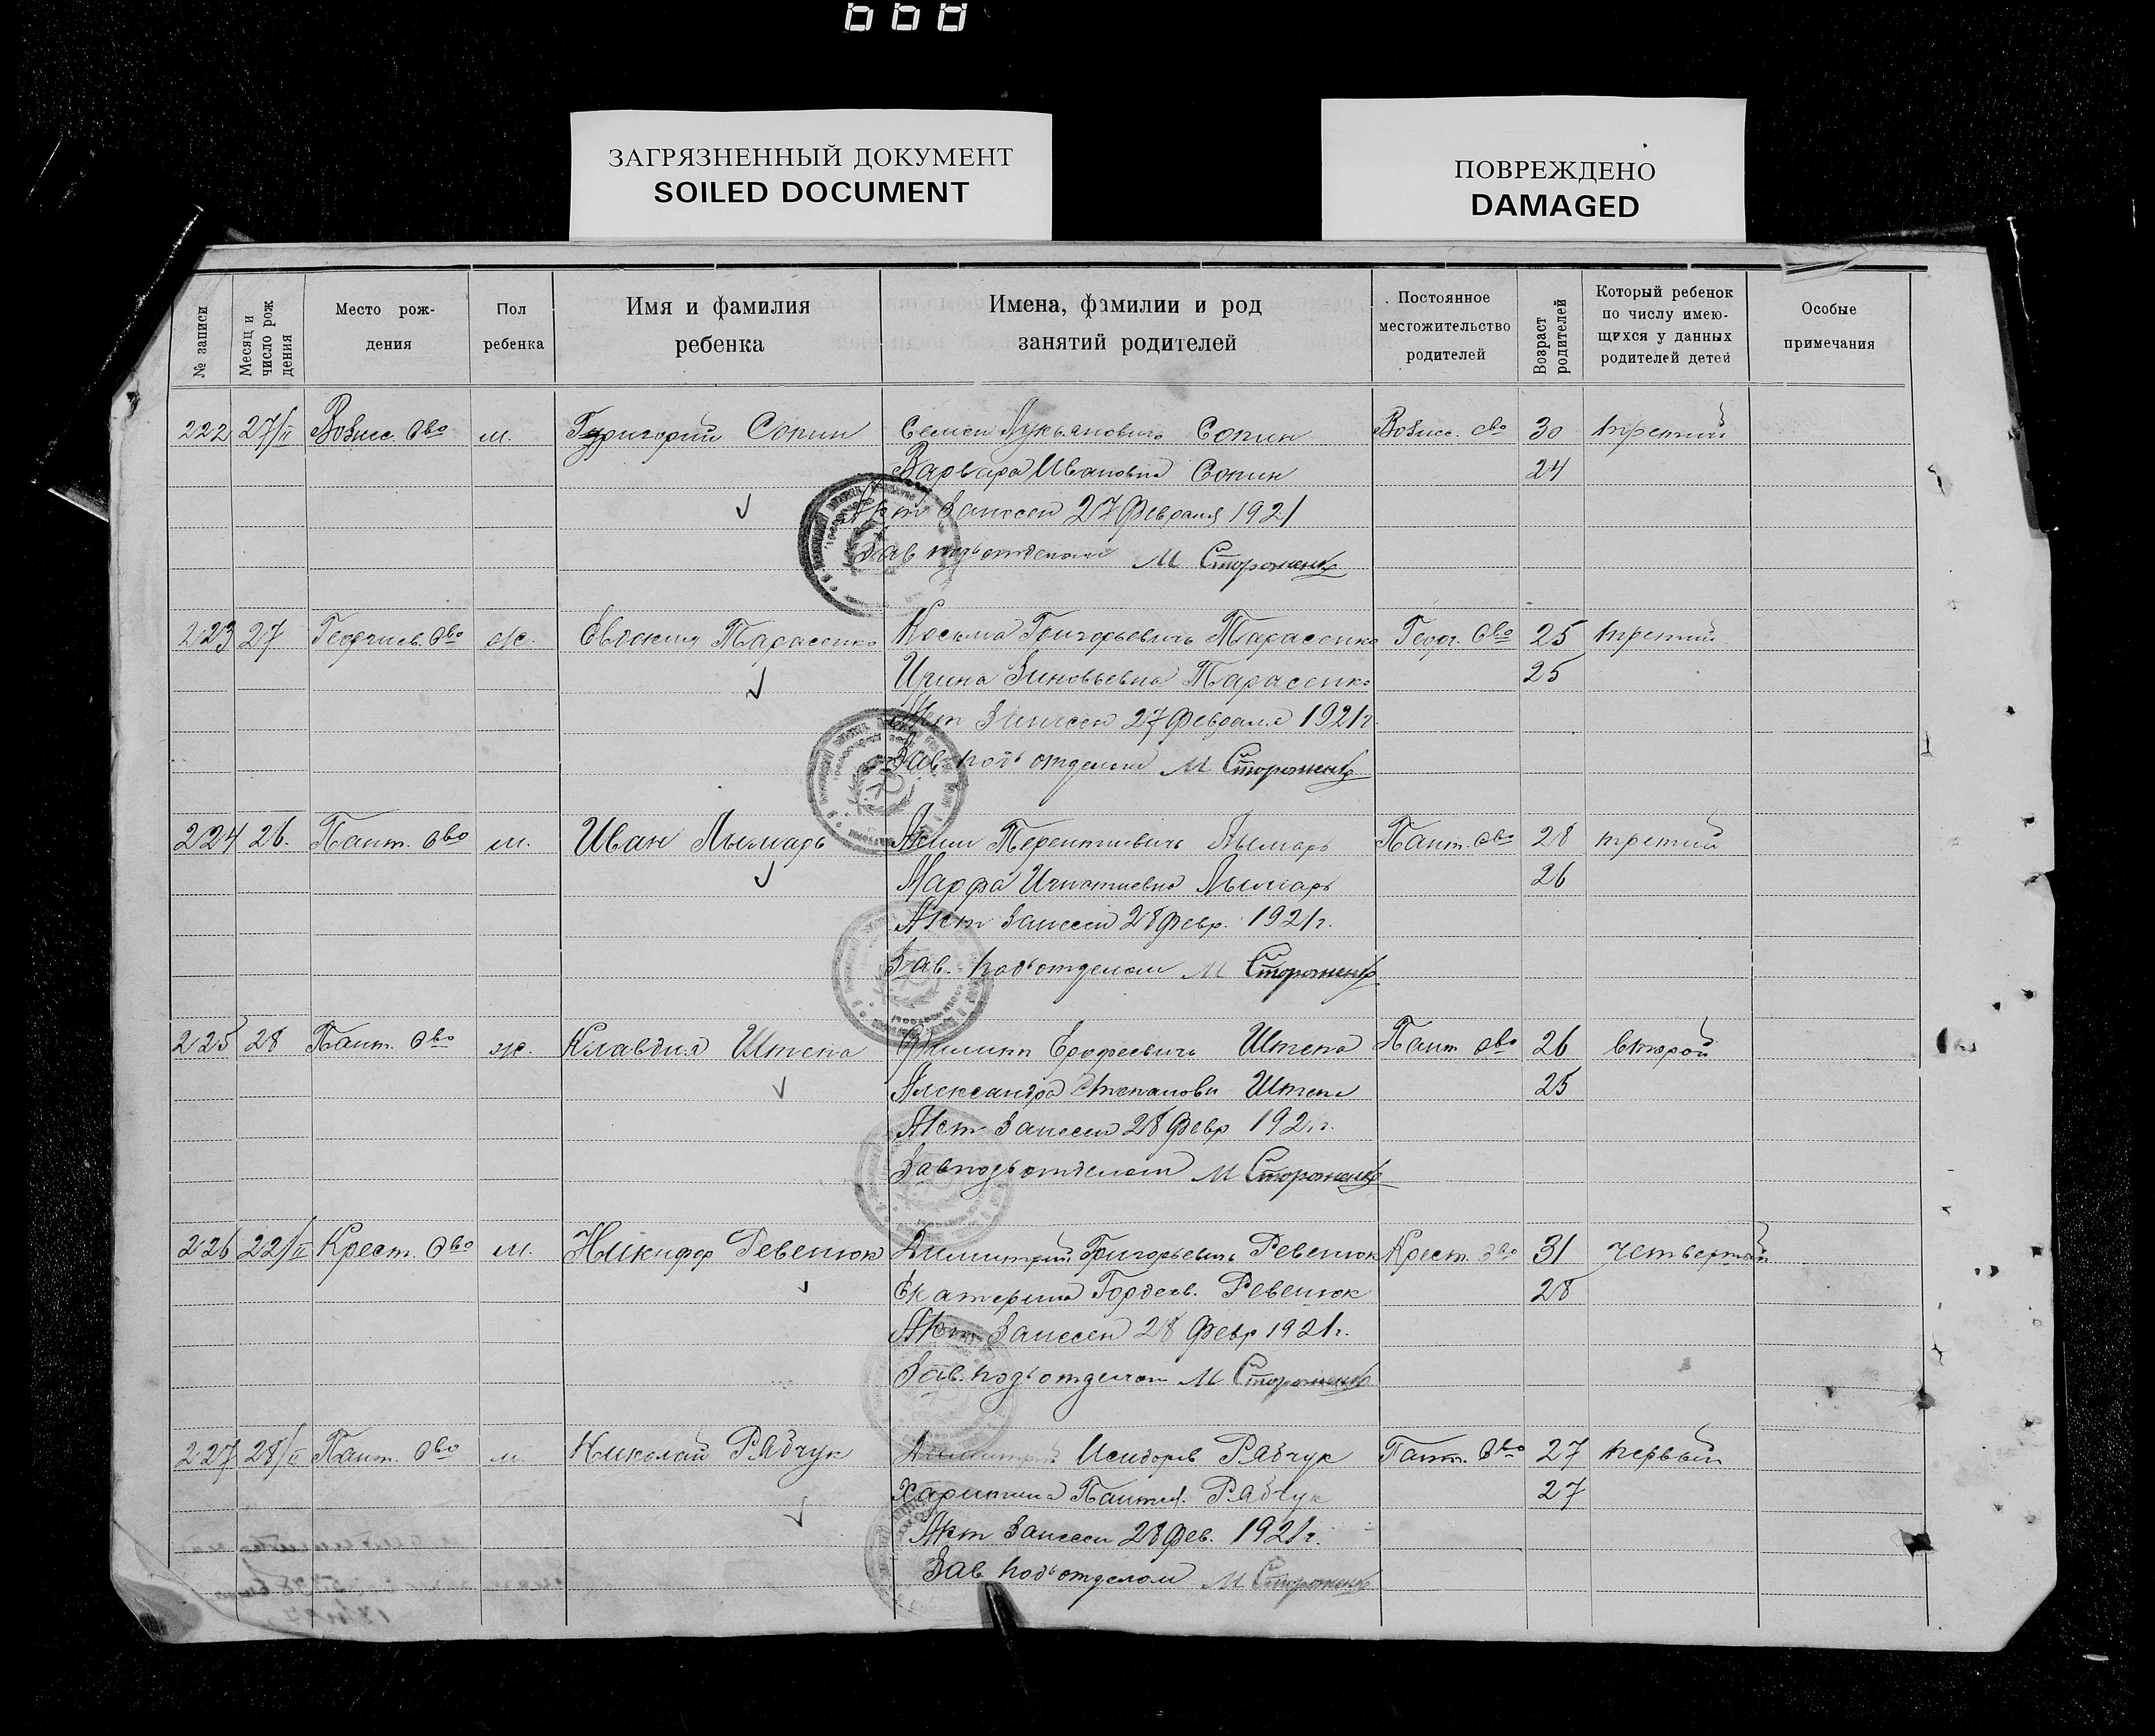 ЗАГРЯЗНЕННЫЙ ДОКУМЕНТ
SOILED DOCUMENT
ПОВРЕЖДЕНО
DAMAGED
№ записи
Месяц и число рождения
Место рождения
Пол ребенка
Имя и фамилия ребенка
Имена, фамилии и род занятий родителей
Постоянное местожительство родителей
Возраст родителей
Который ребенок по числу имеющихся у данных родителей детей
Особые примечания
222 27/II Вознес. о-во м. Григорий Сопин Семен Лукьянович Сопин Вознес. о-во 30 третий
Варвара Ивановна Сопин 24
Акт занесен 27 Февраля 1921
Зав подъотделом М Стороженко
223 27 Георгиев. о-во ж. Евдокия Тарасенко Косьма Григорьевичъ Тарасенко Георг. о-во 25 третий
Ирина Зиновьевна Тарасенко 25
Акт занесен 27 Февраля 1921 г.
Зав. подъотделом М Стороженко
224 26. Пант. о-во м. Иван Лымарь Аким Терентиевичъ Лымарь Пант. о-во 28 третий
Марфа Игнатиевна Лымарь 26
Акт занесен 28 Февр. 1921 г.
Зав. подъотделом М Стороженко
225 28 Пант. о-во ж. Клавдия Штепа Филипп Ерофеевичъ Штепа Пант о-во 26 второй
Александра Степановн Штепа 25
Акт занесен 28 Февр 1921 г.
Зав подъотделом М Стороженко
226 22/II Крест. о-во м. Никифор Ревенюк Димитрий Григорьевичъ Ревенюк Крест. о-во 31 четвертый
Екатерина Гордеев. Ревенюк 28
Акт занесен 28 Февр 1921 г.
Зав. подъотделом М Стороженко
227 28/II Пант. о-во м. Николай Рябчук Димитрий Исидоров Рябчук Пант. о-во 27 первый
Харитина Пантел. Рябчук 27
Акт занесен 28 Фев. 1921 г.
Зав. подъотделом М Стороженко